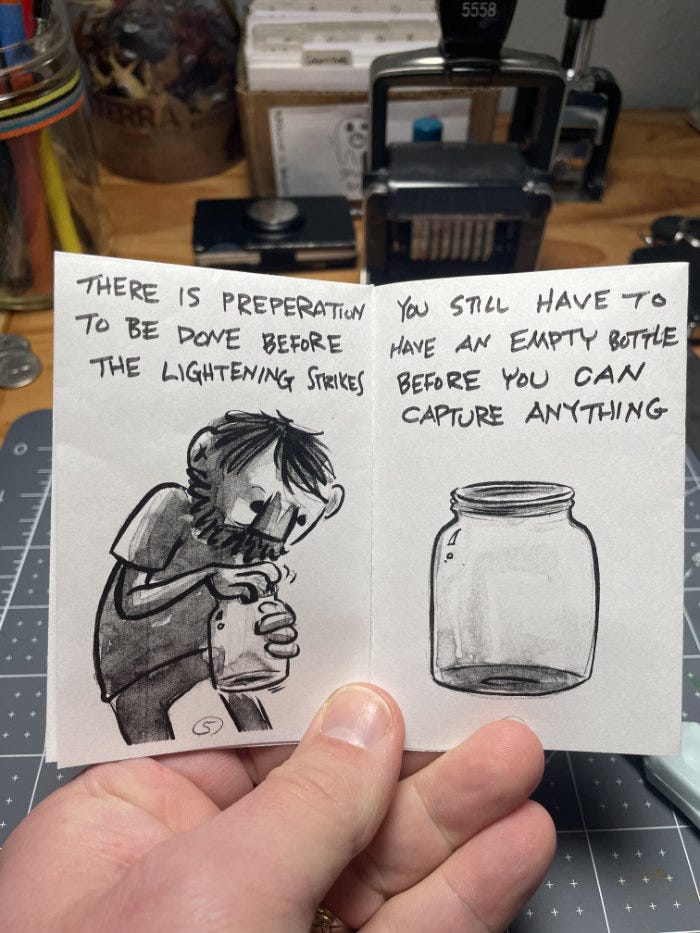 5558
TERRA
THERE IS PREPERATION
TO BE DONE BEFORE
THE LIGHTENING STRIKES
5
YOU STILL HAVE TO
HAVE AN EMPTY BOTTLE
BEFORE YOU CAN
CAPTURE ANYTHING